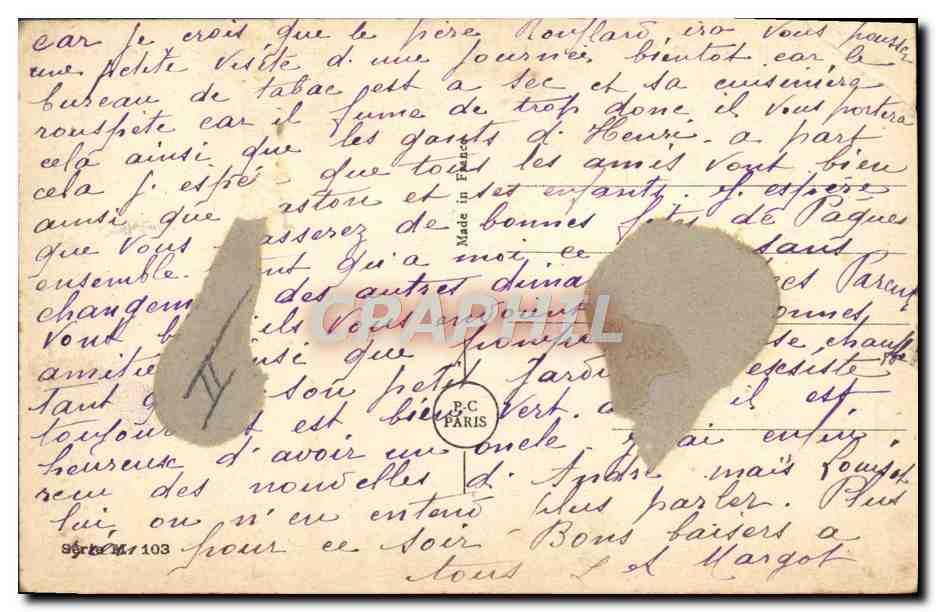 car je crois que le père Rouflard ira vous pousser
une petite visite d'une journée bientot car le
bureau de tabac est a sec et sa cuisinière
rouspète car il fume de trop donc il vous portera
cela ainsi que les gants d'Henri. a part
cela j. espè que tous les amis vont bien
ainsi que aston et ses enfants. J. espère
que vous asserez de bonnes fêtes de Pâques
ensemble. ant qu'a moi ce sans
changem des autres dima es Parent
vont b ils vous envoient onnes
amitié insi que pompo se chauffe
tant q son petit jardi existe
toujou t est bien vert. a il est
heureux d'avoir un oncle j'ai enfin
reçu des nouvelles d. André maïs Louis et
lui, on n'en entend plus parler. Plus
pour ce soir Bons baisers a
tous L et Margot
Made in France
P.C
PARIS
Série M. 103
II
CPAPHIL